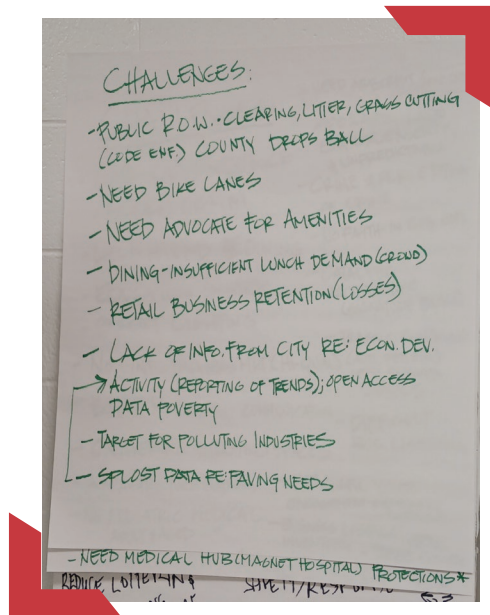 CHALLENGES:
- PUBLIC R.O.W. - CLEARING, LITTER, GRASS CUTTING
(CODE ENF.) COUNTY DROPS BALL
- NEED BIKE LANES
- NEED ADVOCATE FOR AMENITIES
- DINING - INSUFFICIENT LUNCH DEMAND (CROWD)
- RETAIL BUSINESS RETENTION (LOSSES)
- LACK OF INFO. FROM CITY RE: ECON. DEV.
→ ACTIVITY (REPORTING OF TRENDS); OPEN ACCESS
DATA POVERTY
- TARGET FOR POLLUTING INDUSTRIES
- SPLOST DATA RE: PAVING NEEDS
- NEED MEDICAL HUB (MAGNET HOSPITAL) PROTECTIONS *
REDUCE LOITERING